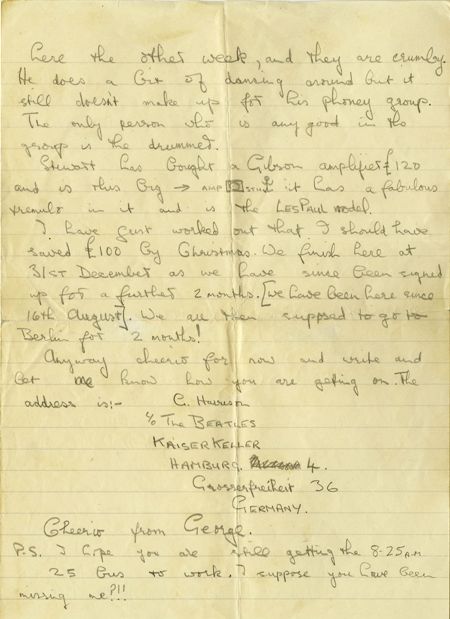 here the other week, and they are crumby.
He does a bit of dancing around but it
still doesn't make up for his phoney group.
The only person who is any good in the
group is the drummer.
Stewart has bought a Gibson amplifier £120
and is this big → AMP it has a fabulous
tremulo in it and is the LES PAUL model.
I have just worked out that I should have
saved £100 by Christmas. We finish here at
31ST December as we have since been signed
up for a further 2 months. [we have been here since
16th August]. We are then supposed to go to
Berlin for 2 months!
Anyway cheerio for now and write and
let me know how you are getting on. The
address is:- G. Harrison
c/o THE BEATLES
KAISERKELLER
HAMBURG. 4.
Grosserfreiheit 36
GERMANY.
Cheerio from George.
P.S. I hope you are still getting the 8-25 A.M
25 bus to work. I suppose you have been
missing me?!!